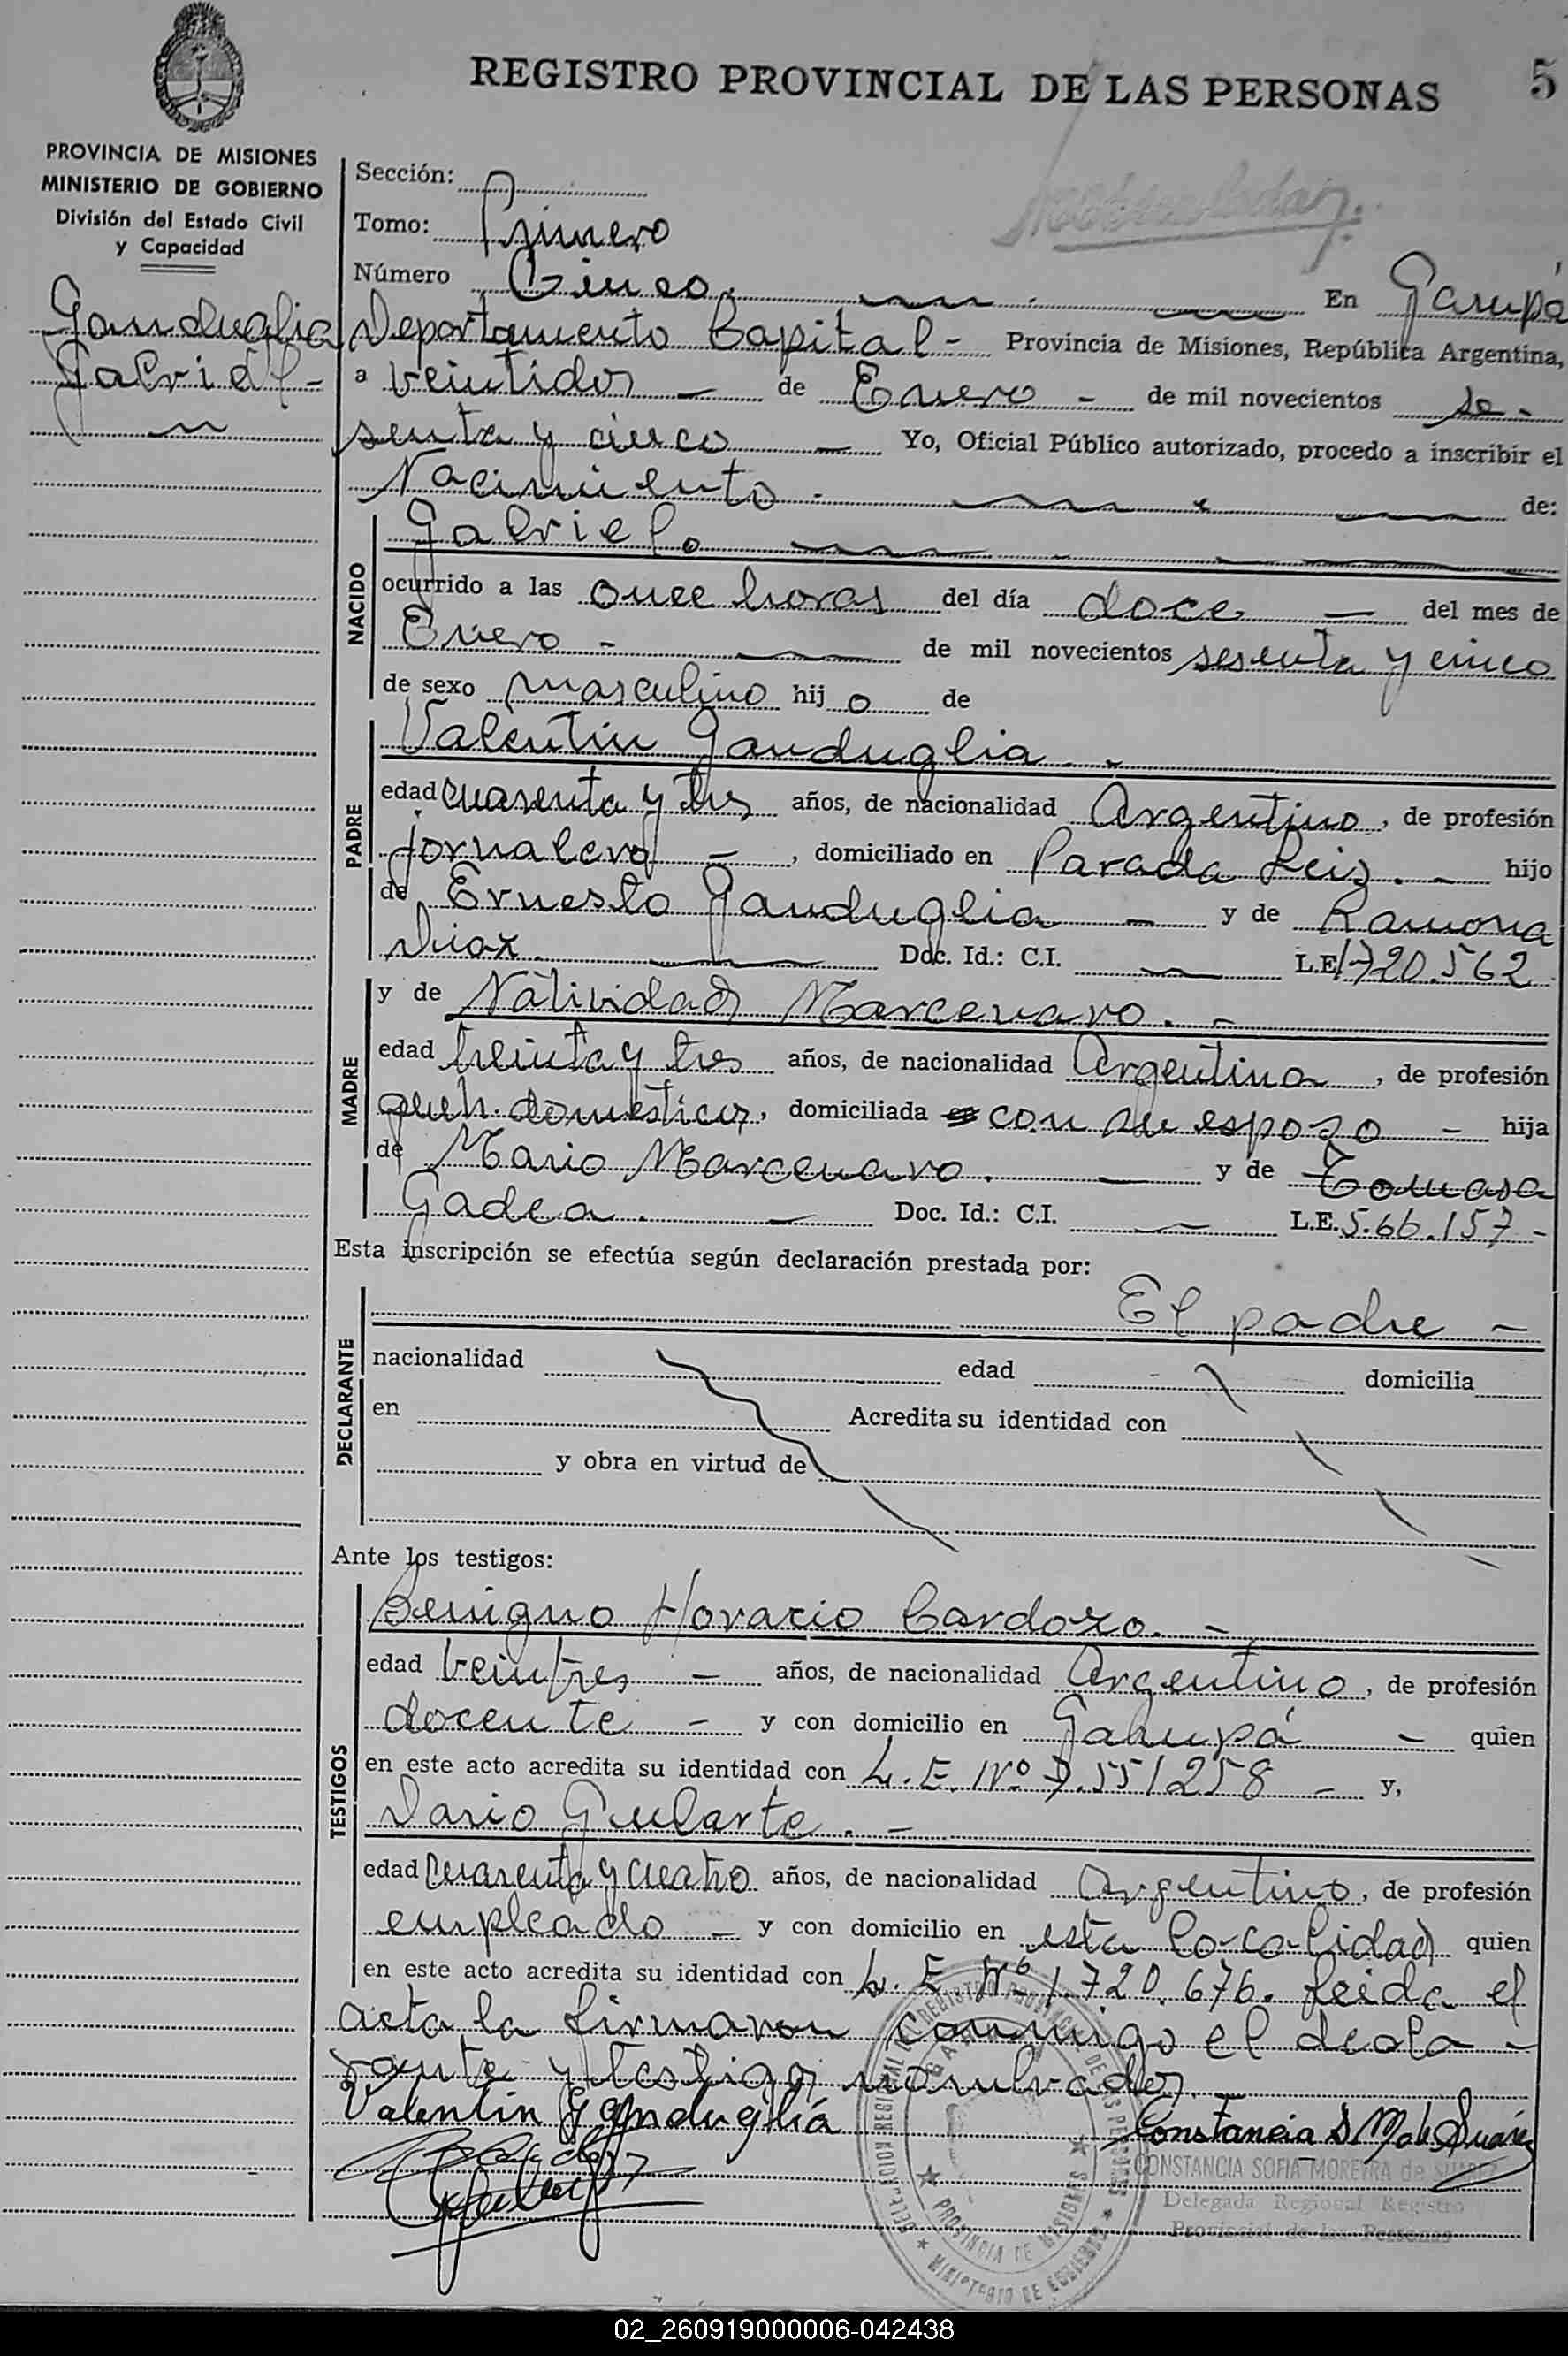 REGISTRO PROVINCIAL DE LAS PERSONAS
5
PROVINCIA DE MISIONES
MINISTERIO DE GOBIERNO
División del Estado Civil
y Capacidad
Ganduglia
Gabriel -
Sección:
Tomo: Primero
Número Cinco. En Garupá
Departamento Capital - Provincia de Misiones, República Argentina,
a veintidos - de Enero - de mil novecientos se -
senta y cinco - Yo, Oficial Público autorizado, procedo a inscribir el
Nacimiento - de:
NACIDO
Gabriel.
ocurrido a las once horas del día doce - del mes de
Enero - de mil novecientos sesenta y cinco
de sexo masculino hij o de
PADRE
Valentin Ganduglia . -
edad cuarenta y tres años, de nacionalidad Argentino, de profesión
jornalero -, domiciliado en Parada Leiz. - hijo
de Ernesto Ganduglia - y de Ramona
Diax. Doc. Id.: C.I. - L.E. 1720.562
MADRE
y de Natividad Marcenaro. -
edad treinta y tres años, de nacionalidad Argentina, de profesión
queh. domésticos, domiciliada en con su esposo - hija
de Mario Marcenaro. - y de Tomasa
Gadea. - Doc. Id.: C.I. - L.E. 5.66.157 -
Esta inscripción se efectúa según declaración prestada por:
DECLARANTE
El padre -
nacionalidad edad domicilia
en Acredita su identidad con
y obra en virtud de
Ante los testigos:
TESTIGOS
Benigno Horacio Cardozo. -
edad veintres - años, de nacionalidad Argentino, de profesión
docente - y con domicilio en Garupá - quien
en este acto acredita su identidad con L.E. Nº 7.551258 - y,
Dario Gularte. -
edad cuarenta y cuatro años, de nacionalidad Argentino, de profesión
empleado - y con domicilio en esta localidad quien
en este acto acredita su identidad con L. E Nº 1.720.676. Leida el
acta la firmaron conmigo el decla -
rante y testigos nombrados. -
Valentin Ganduglia
Constancia S M de Suárez
CONSTANCIA SOFIA MOREYRA de SUAREZ
Delegada Regional Registro
Provincial de las Personas
PROVINCIA DE MISIONES
MINISTERIO DE GOBIERNO
02_260919000006-042438